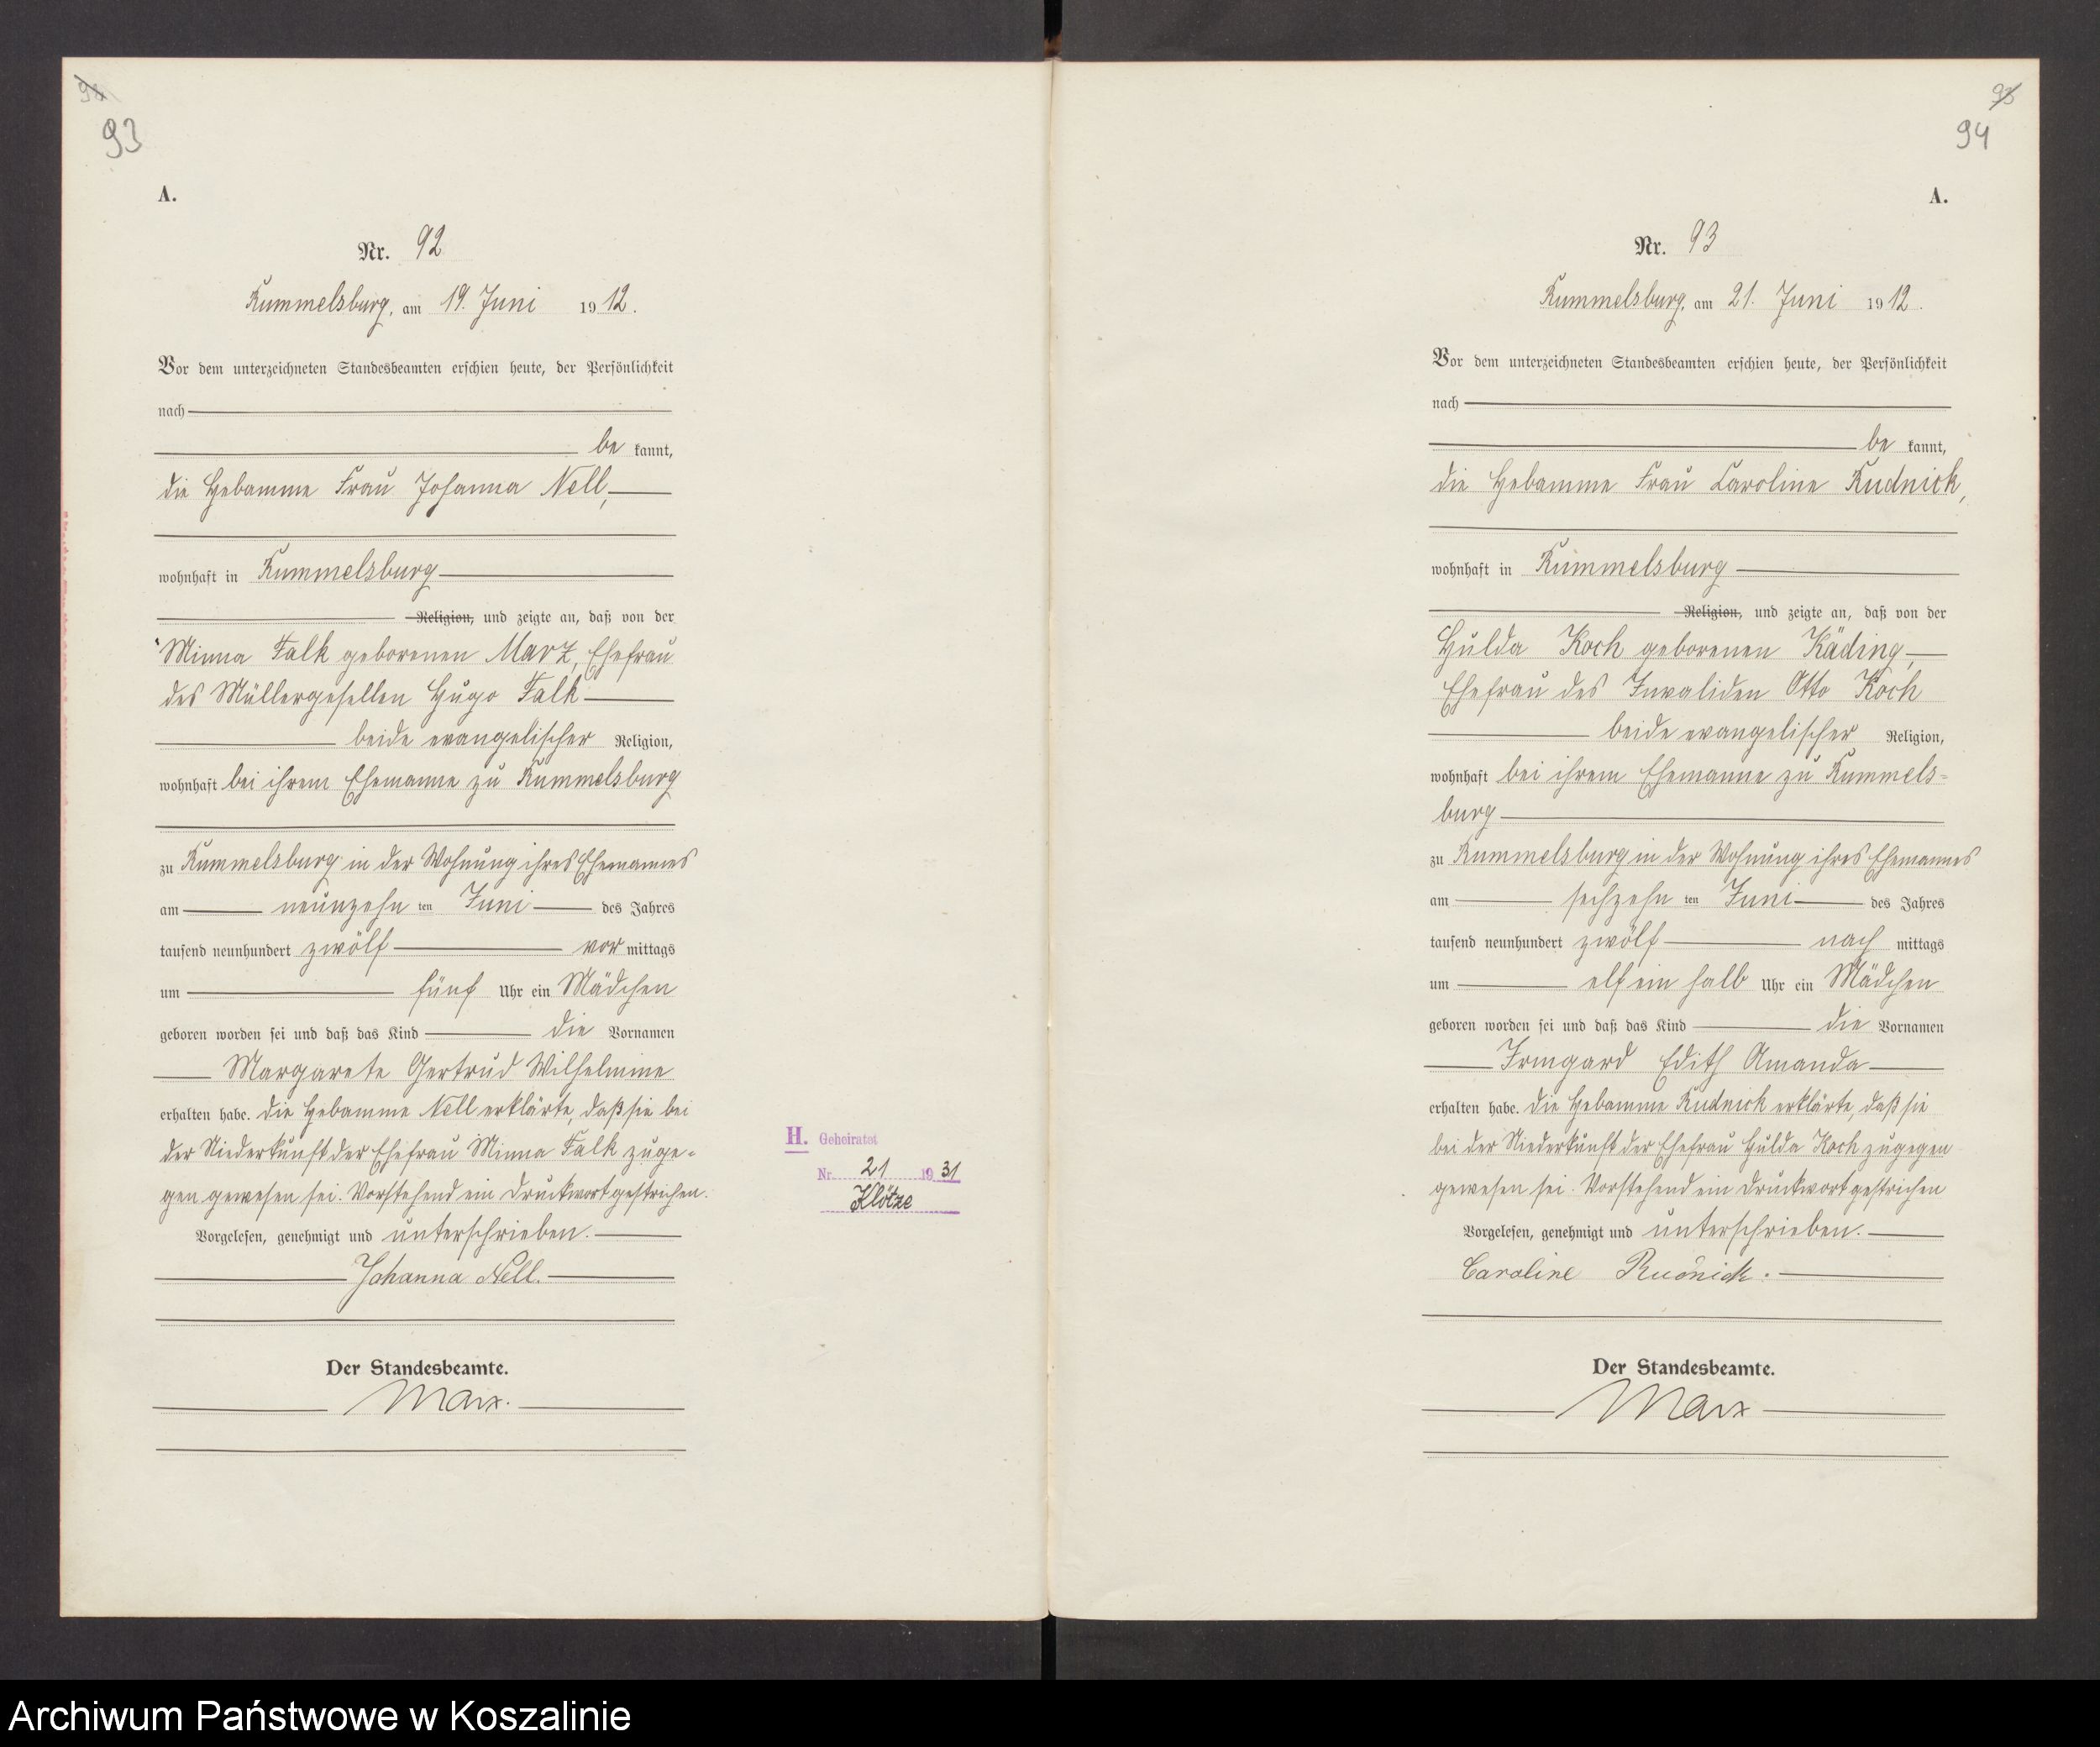 93
A.
Nr. 92
Rummelsburg, am 19. Juni 1912.
Vor dem unterzeichneten Standesbeamten erschien heute, der Persönlichkeit
nach
be kannt,
die Hebamme Frau Johanna Nell,
wohnhaft in Rummelsburg
Religion, und zeigte an, daß von der
Minna Falk geborenen Marz, Ehefrau
des Müllergesellen Hugo Falk
beide evangelischer Religion,
wohnhaft bei ihrem Ehemanne zu Rummelsburg
zu Rummelsburg in der Wohnung ihres Ehemannes
am neunzehn ten Juni des Jahres
tausend neunhundert zwölf vor mittags
um fünf Uhr ein Mädchen
geboren worden sei und daß das Kind die Vornamen
Margarete Gertrud Wilhelmine
erhalten habe. Die Hebamme Nell erklärte, daß sie bei
der Niederkunft der Ehefrau Minna Falk zuge-
gen gewesen sei. Vorstehend ein Druckwort gestrichen.
Vorgelesen, genehmigt und unterschrieben.
Johanna Nell.
Der Standesbeamte.
Marx.
H. Geheiratet
Nr. 21 1931
Klötze
94
A.
Nr. 93
Rummelsburg, am 21. Juni 1912.
Vor dem unterzeichneten Standesbeamten erschien heute, der Persönlichkeit
nach
be kannt,
die Hebamme Frau Caroline Rudnick,
wohnhaft in Rummelsburg
Religion, und zeigte an, daß von der
Hulda Koch geborenen Käding,
Ehefrau des Invaliden Otto Koch
beide evangelischer Religion,
wohnhaft bei ihrem Ehemanne zu Rummels-
burg
zu Rummelsburg in der Wohnung ihres Ehemannes
am sechzehn ten Juni des Jahres
tausend neunhundert zwölf nach mittags
um elf ein halb Uhr ein Mädchen
geboren worden sei und daß das Kind die Vornamen
Irmgard Edith Amanda
erhalten habe. Die Hebamme Rudnick erklärte, daß sie
bei der Niederkunft der Ehefrau Hulda Koch zugegen
gewesen sei. Vorstehend ein Druckwort gestrichen
Vorgelesen, genehmigt und unterschrieben.
Caroline Rudnick.
Der Standesbeamte.
Marx
Archiwum Państwowe w Koszalinie